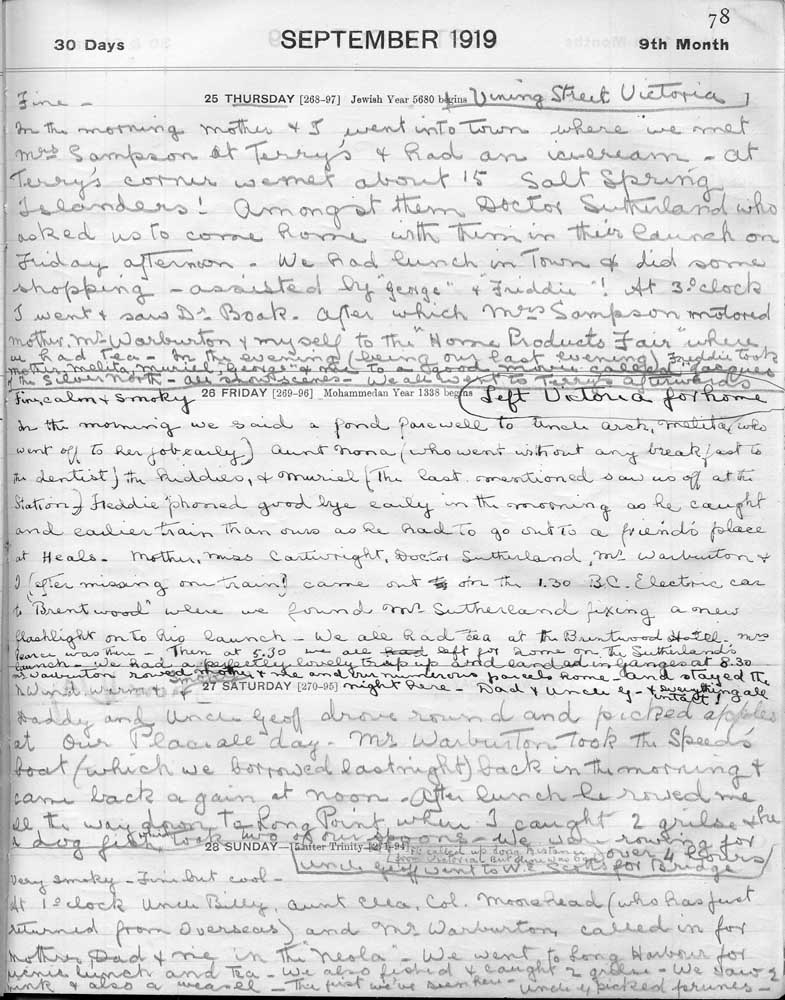 78
30 Days SEPTEMBER 1919 9th Month
Fine - 25 THURSDAY [268-97] Jewish Year 5680 begins Vining Street Victoria
In the morning mother & I went into town where we met
Mrs Sampson at Terry's & had an icecream - at
Terry's corner we met about 15 Salt Spring
Islanders! Amongst them Doctor Sutherland who
asked us to come home with them in their launch on
Friday afternoon - We had lunch in Town & did some
shopping - assisted by "george" & "Freddie"! At 3 o'clock
I went & saw Dr Boak. After which Mrs Sampson motored
mother, Mr Warburton & myself to the "Home Products Fair" where
we had tea - In the evening (being our last evening) Freddie took
mother, Melita, Muriel, George & me to a good movie called Jacques
of the Silver North - all snow scenes - We all went to Terry's afterwards
Fine, calm & Smoky 26 FRIDAY [269-96] Mohammedan Year 1338 begins Left Victoria for home
In the morning we said a fond farewell to Uncle Arch, Melita, (who
went off to her job early) Aunt Nona (who went without any breakfast to
the dentist) the kiddies, & Muriel (The last mentioned saw us off at the
Station) Freddie 'phoned good bye early in the morning as he caught
and earlier train than ours as he had to go out to a friend's place
at Heals. Mother, Miss Cartwright, Doctor Sutherland, Mr Warburton &
I (after missing one train!) came out on the 1.30 B.C. Electric car
to "Brentwood" where we found Mrs Sutherland fixing a new
flashlight on to his launch - We all had tea at the Brentwood Hotel. Mrs
was there - Then at 5.30 we all had left for home on the Sutherland's
launch - We had a perfectly lovely trip up and landed in Ganges at 8.30
Mr Warburton rowed mother & me and our numerous parcels home - and stayed the
N Wind. Warm & 27 SATURDAY [270-95] night here - Dad & Uncle G - & everything all
intact!
Daddy and Uncle Geoff drove round and picked apples
at Our Place all day - Mr Warburton took the Speed's
boat (which we borrowed last night) back in the morning &
came back again at noon - After lunch he rowed me
all the way down to Long Point where I caught 2 grilse & he
a dog fish which took two of our spoons - We were rowing for
28 SUNDAY [5 after Trinity-271-94] called up long distance over 4 hours
from Victoria but
Uncle Geoff went to W.E. Scott's for Bridge
Very smoky - Fine but cool -
At 1 o'clock Uncle Billy, Aunt Clea, Col. Moorehead (who has just
returned from Overseas) and Mr Warburton called in for
mother, Dad & me in the "Neola" - We went to Long Harbour for
picnic lunch and tea - We also fished & caught 2 grilse - We saw 2
mink & also a weasel - The first we've seen here - Uncle G picked prunes -